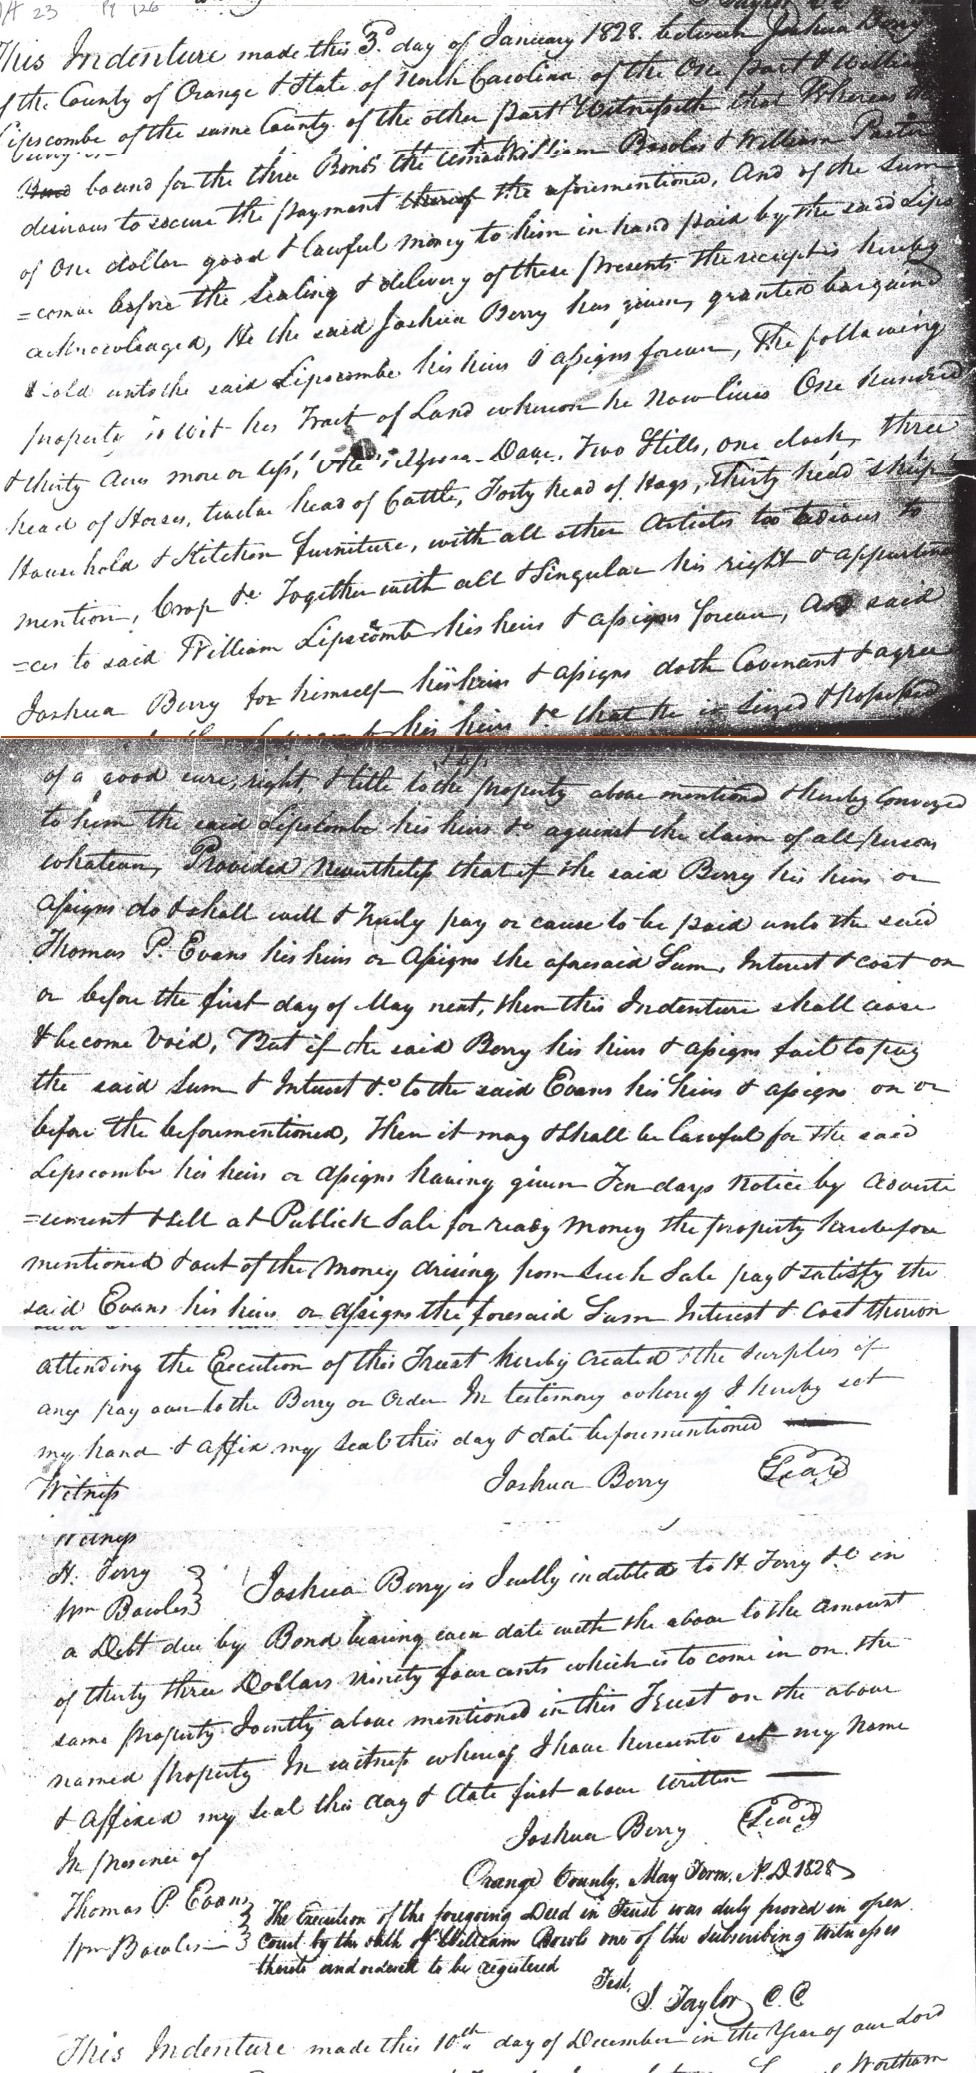 23 Pg 126
This Indenture made this 3d. day of January 1828. between Joshua Berry
of the County of Orange & State of North Carolina of the One part & William
Lipscombe of the same County of the other part Witnesseth that Whereas
bound for the three Bonds the William Bowles & William
desirous to secure the payment the aforementioned, And of the Sum
of One dollar good & lawful money to him in hand paid by the said Lips
=combe before the Sealing & delivery of these presents the receipt is hereby
acknowledged, He the said Joshua Berry has given, granted bargaind
& sold unto the said Lipscombe his heirs & assigns forever, The following
property to wit his Tract of Land whereon he Now lives One hundred
& thirty Acres more or less, Dave, Two Stills, one clock, three
head of Horses, twelve head of Cattle, Forty head of Hogs, Thirty head sheep
Household & Kitchen furniture, with all other Articles too tedious to
mention, Crop &c Together with all & Singular his right & appurtenan
=ces to said William Lipscombe his heirs & assigns forever, And said
Joshua Berry for himself his heirs & assigns doth Covenant & agree
his heirs &c that he is Siezed & Possessed
of a good sure, right, & title to the property above mentioned & hereby Conveyed
to him the said Lipscombe his heirs &c against the claim of all persons
whatever, Provided Nevertheless that if the said Berry his heirs or
assigns do & shall well & truly pay or cause to be paid unto the said
Thomas P. Evans his heirs or assigns the aforesaid Sum, Interest & cost on
or before the first day of May next, then this Indenture shall cease
& become Void, But if the said Berry his heirs & assigns fail to pay
the said Sum & Interest &c to the said Evans his heirs & assigns on or
before the beforementioned, Then it may & shall be lawful for the said
Lipscombe his heirs or assigns having given Ten days Notice by adverti
=sement & sell at Publick Sale for ready money the property herebefore
mentioned & out of the Money arising from such Sale pay & satisfy the
said Evans his heirs or assigns the foresaid Sum Interest & Cost thereon
attending the Execution of this Trust hereby created & the surplus if
any pay over to the Berry or Order In testimony whereof I hereby set
my hand & affix my Seal this day & date beforementioned
Joshua Berry Seal
Witness
Witness
H. Terry
Wm Bowles
Joshua Berry is Justly indetted to H Terry &c in
a Debt due by Bond bearing even date with the above to the amount
of thirty three Dollars Ninety four cents which is to come in on the
same property Jointly above mentioned in this Trust on the above
named property In witness whereof I have hereunto set my Name
& affixed my seal this day & date first above written
Joshua Berry Seal
In presence of
Thomas P. Evans
Wm Bowles
Orange County, May Term, A.D. 1828
The Execution of the foregoing Deed in Trust was duly proved in open
Court by the oath of William Bowls one of the Subscribing Witnesses
thereto and ordered to be registered
Test,
J. Taylor C. C
This Indenture made this 10th day of December in the Year of our Lord
Wortham